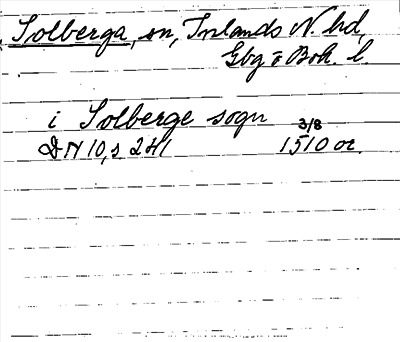 Solberga, sn, Inlands N. hd,
Gbg o Boh. l.
i Solberge sogn
3/8
DN 10, s 241 1510 or.